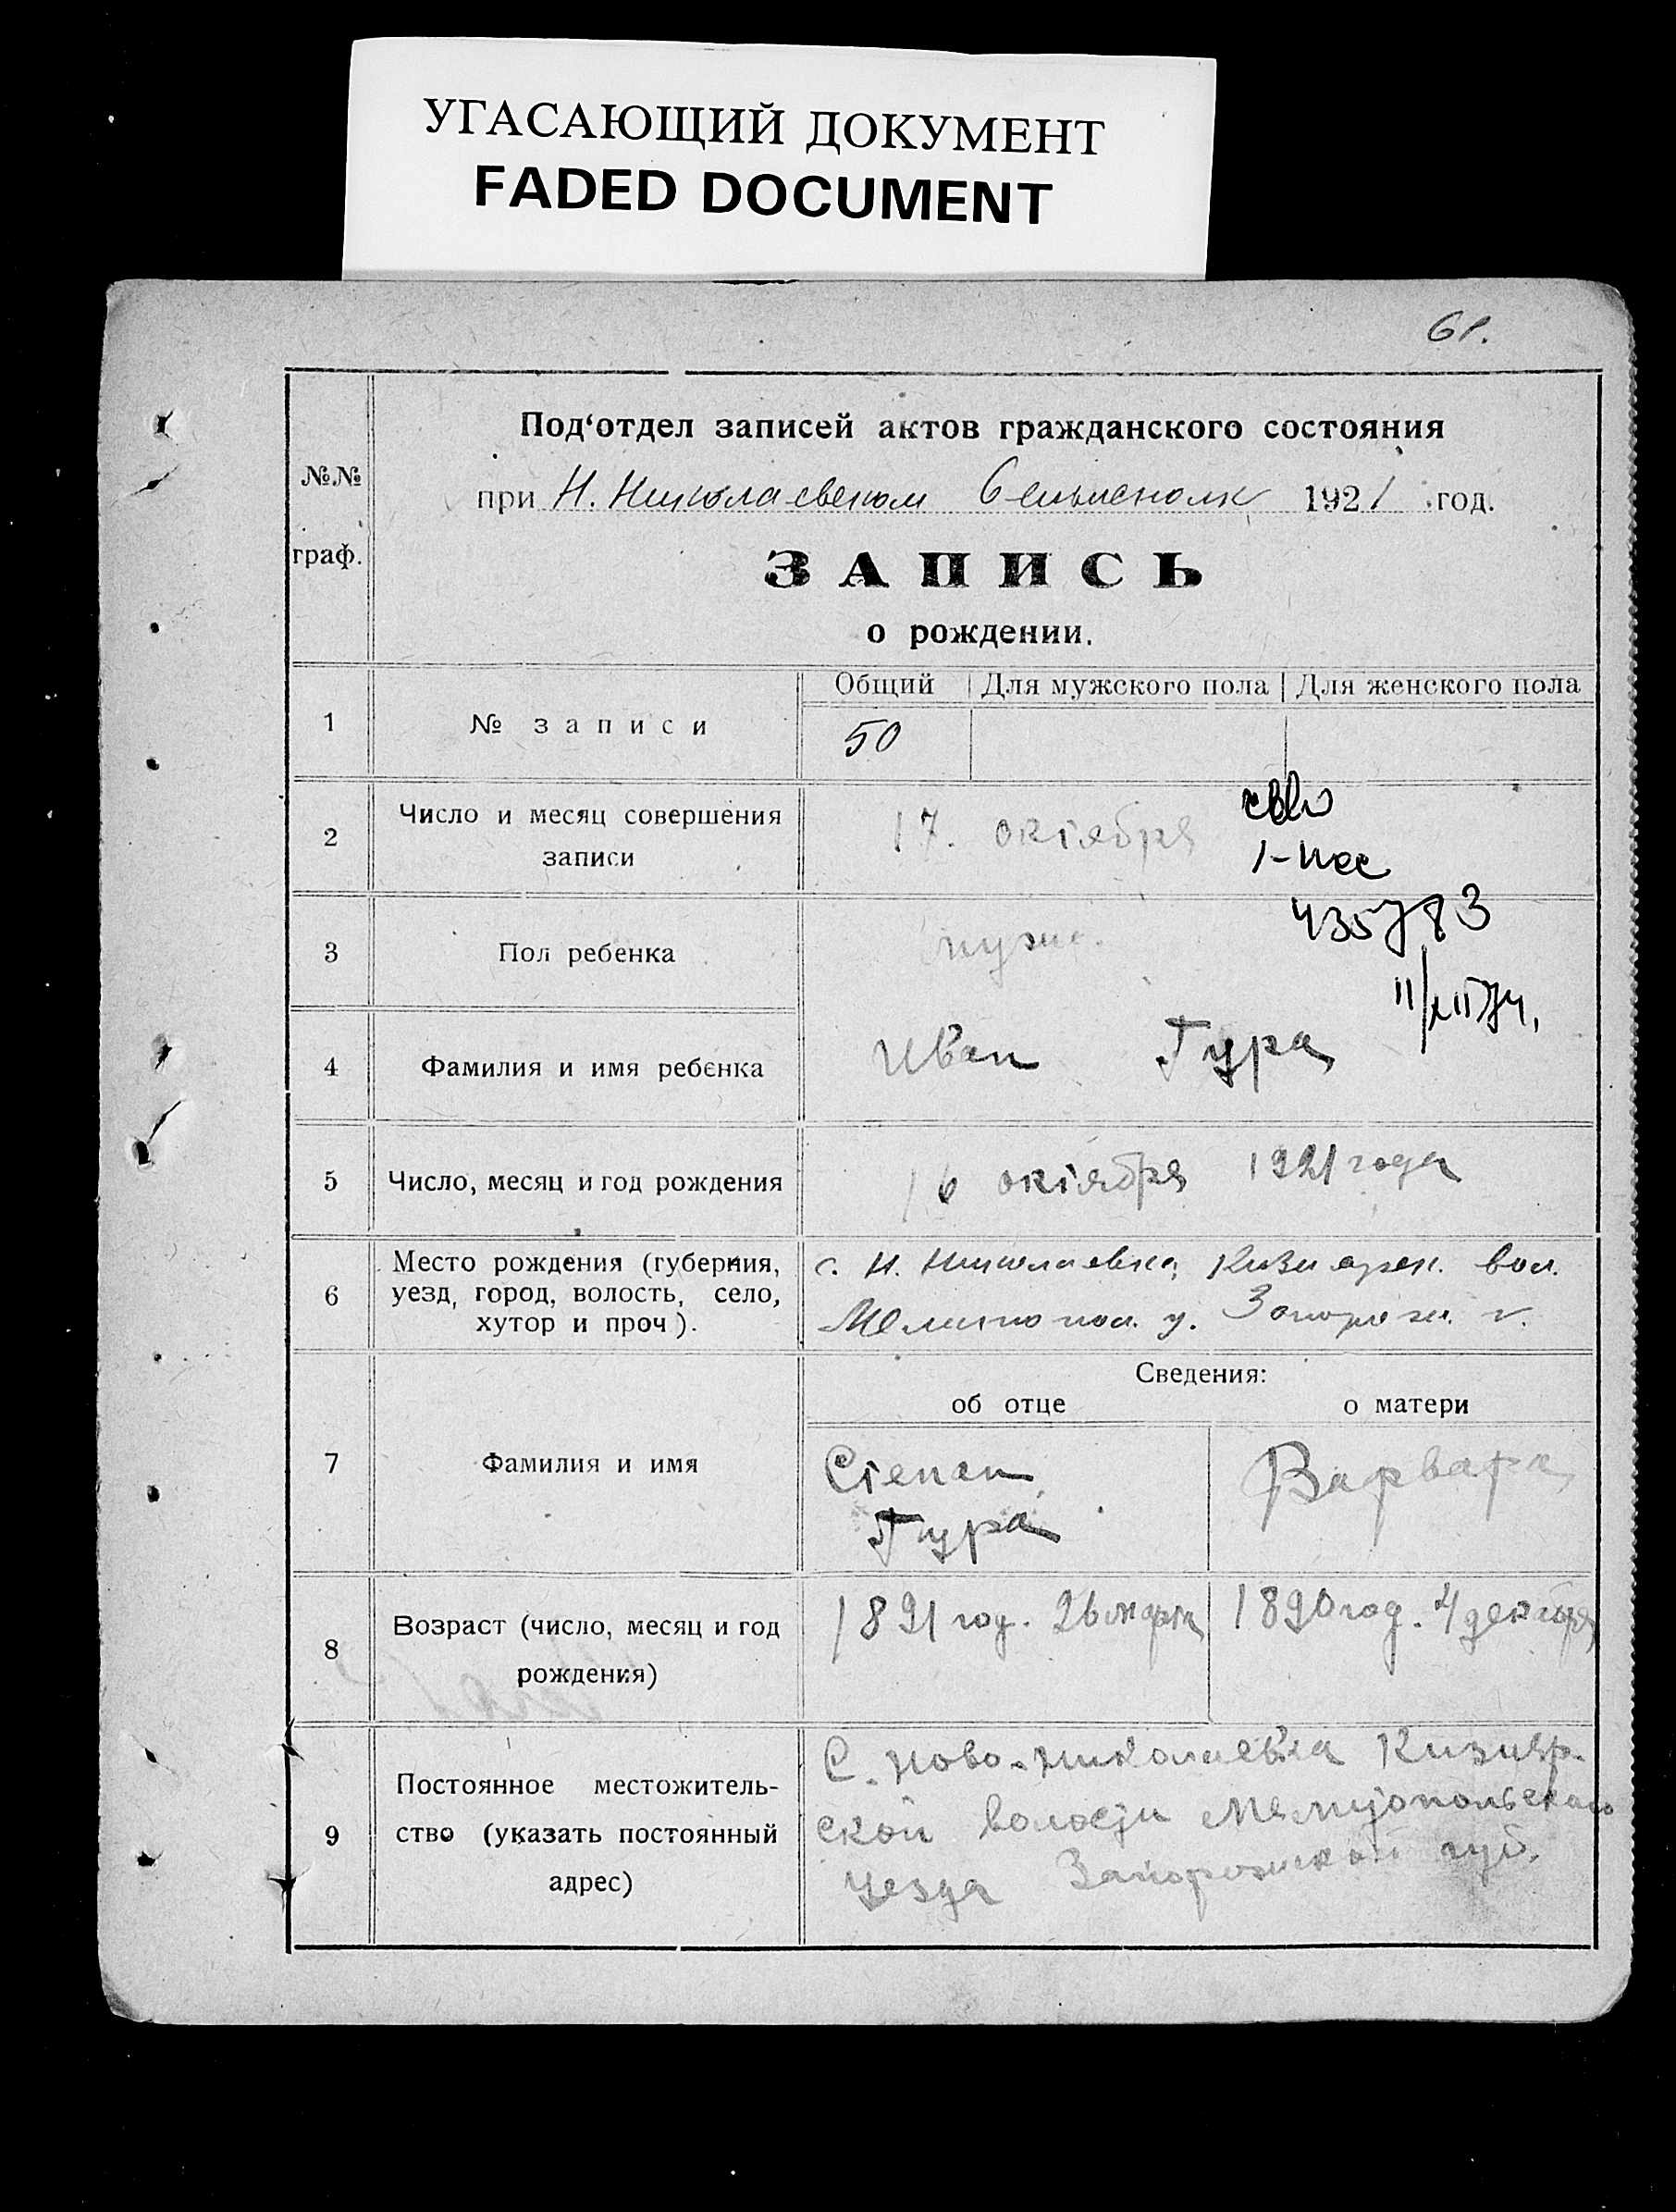 УГАСАЮЩИЙ ДОКУМЕНТ
FADED DOCUMENT
61.
№№
граф.
Под‘отдел записей актов гражданского состояния
при Н. Николаевском 1921 год.
ЗАПИСЬ
о рождении.
Общий Для мужского пола Для женского пола
1 № записи 50
2 Число и месяц совершения
записи
17. октября
1-пос
435783
3 Пол ребенка муж.
4 Фамилия и имя ребенка Иван Гура
5 Число, месяц и год рождения 16 октября 1921 года
6 Место рождения (губерния,
уезд, город, волость, село,
хутор и проч).
с. Н. Николаевка, Кизиярск. вол.
Мелитопол. у. Запорож. г.
Сведения:
об отце о матери
7 Фамилия и имя
Степан
Гура
Варвара
8 Возраст (число, месяц и год
рождения)
1891 год. 26 марта 1890 год. 4 декабря
9 Постоянное местожитель-
ство (указать постоянный
адрес)
С. Ново-Николаевка Кизияр-
ской волости Мелитопольского
уезда Запорожской губ.